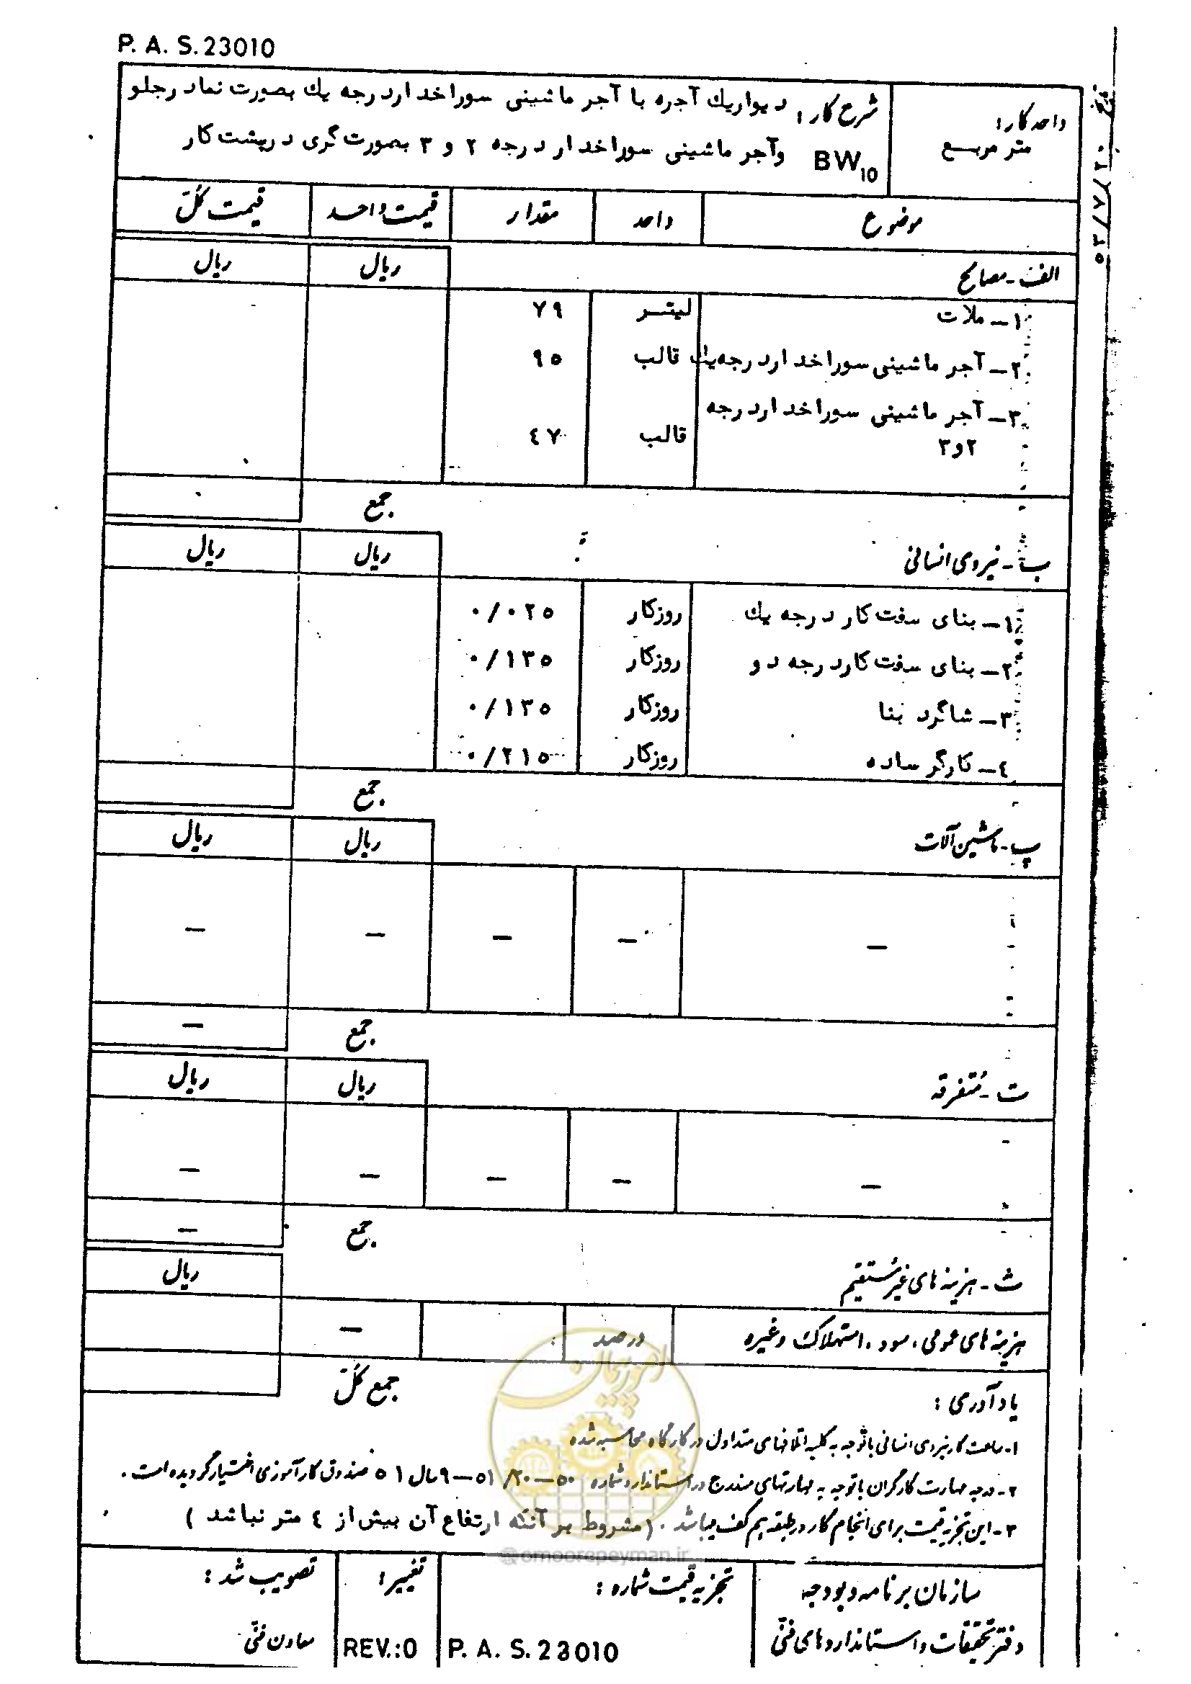 P. A. S. 23010
واحد کار:
متر مربع
شرح کار: دیوار یک آجره با آجر ماشینی سوراخدار درجه یک بصورت نما در جلو
وآجر ماشینی سوراخدار درجه ۲ و ۳ بصورت گری در پشت کار BW10
۵۳/۸/۲۰
موضوع واحد مقدار قیمت واحد قیمت کل
الف - مصالح ریال ریال
۱- ملات لیتر ۷۹
۲- آجر ماشینی سوراخدار درجه یک قالب ۹۵
۳- آجر ماشینی سوراخدار درجه
۲و۳ قالب ٤۷
جمع
ب - نیروی انسانی ریال ریال
۱- بنای سفت کار درجه یک روزکار ۰/۰۲۵
۲- بنای سفت کار درجه دو روزکار ۰/۱۳۵
۳- شاگرد بنا روزکار ۰/۱۳۵
٤- کارگر ساده روزکار ۰/۲۱۵
جمع
پ - ماشین آلات ریال ریال
— — — — —
جمع —
ت - متفرقه ریال ریال
— — — — —
جمع —
ث - هزینه های غیر مستقیم ریال
هزینه های عمومی، سود، استهلاک وغیره درصد —
جمع کل
یادآوری:
۱- ساعت کار نیروی انسانی باتوجه به کلیه اتلافهای متداول در کارگاه محاسبه شده
۲- درجه مهارت کارگران باتوجه به مهارتهای مندرج در استاندارد شماره ۵۰-۲۰/ ۵۱-۹ سال ۵۱ صندوق کارآموزی اختیار گردیده است.
۳- این تجزیه قیمت برای انجام کار در طبقه هم کف میباشد. (مشروط بر آنکه ارتفاع آن بیش از ٤ متر نباشد)
@omoorepeyman.ir
امور پیمان
سازمان برنامه وبودجه
دفتر تحقیقات واستانداردهای فنی
تجزیه قیمت شماره:
P. A. S. 23010
تغییر:
REV.:0
تصویب شد:
معاون فنی